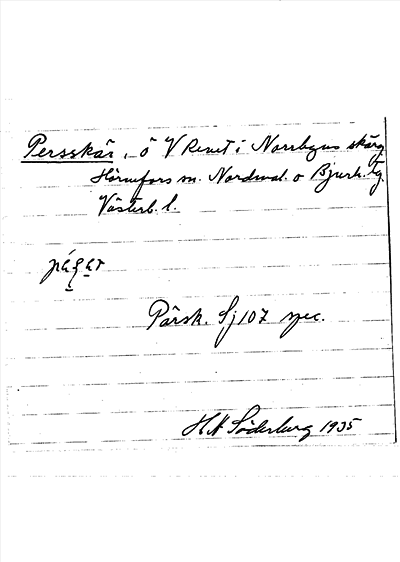 Persskär, ö V Revet i Norrbyns skärg
Hörnefors sn. Nordmal. o Bjurh. tg.
Västerb. l.
Pärsk. Sj 107 spec.
H N Söderberg 1935